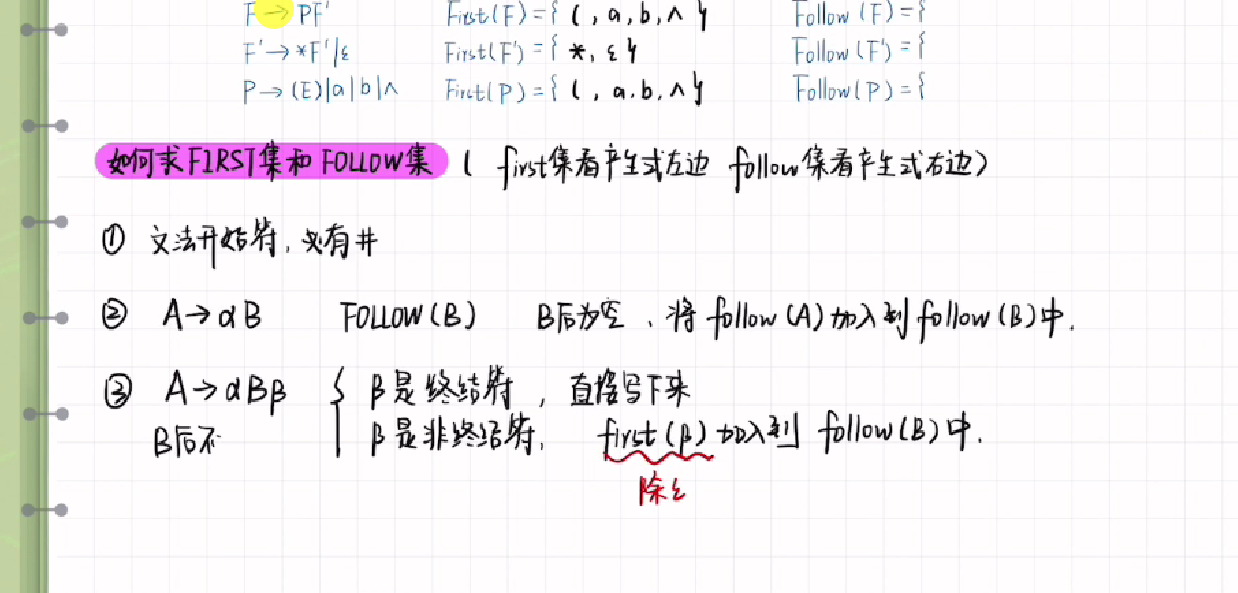 F→PF' First(F)={ (, a, b, ∧ } Follow(F)={
F'→*F'|ε First(F')={ *, ε } Follow(F')={
P→(E)|a|b|∧ First(P)={ (, a, b, ∧ } Follow(P)={
如何求FIRST集和FOLLOW集 ( first集看产生式左边 follow集看产生式右边)
① 文法开始符, 必有#
② A→αB FOLLOW(B) B后为空、将follow(A)加入到follow(B)中.
③ A→αBβ { β是终结符, 直接写下来
B后不 β是非终结符, first(β)加入到 follow(B)中.
除ε